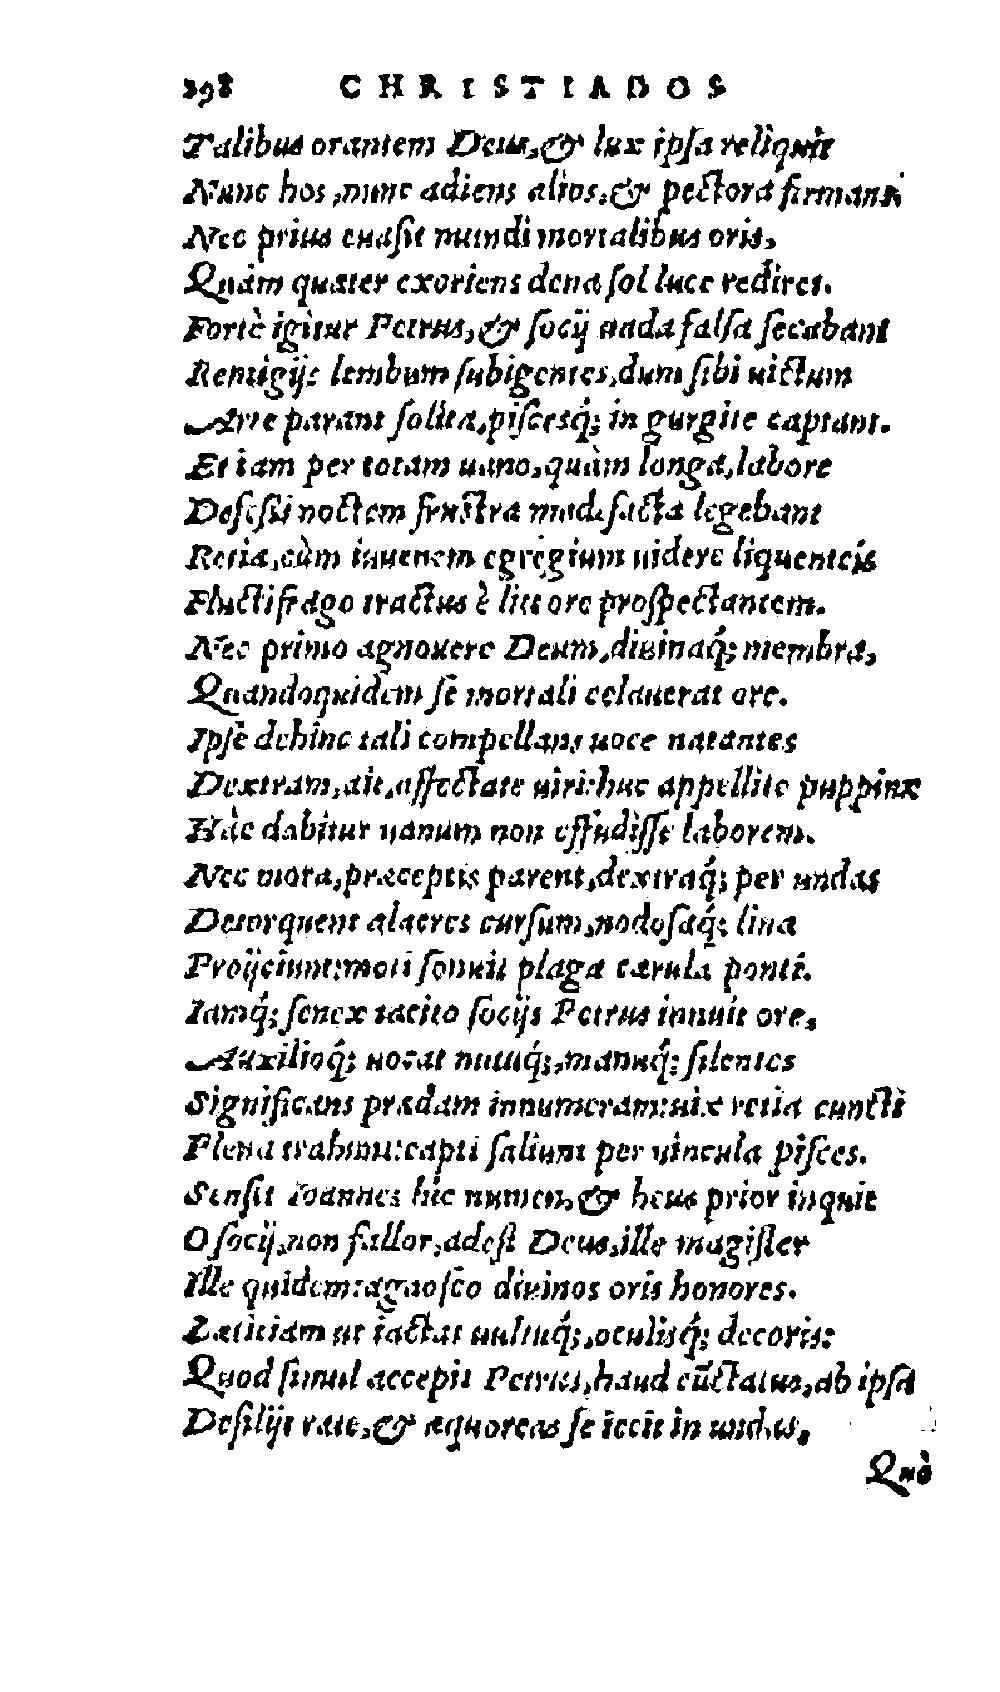 298 CHRISTIADOS
Talibus orantem Deus, & lux ipsa reliquit
Nunc hos, nunc adiens alios, & pectora firmans
Nec prius euasit mundi mortalibus oris,
Quàm quater exoriens dena sol luce rediret.
Fortè igitur Petrus, & socij uada salsa secabant
Remigijs lembum subigentes, dum sibi uictum
Arte parant solita, piscesq́; in gurgite captant.
Et iam per totam uano, quàm longa, labore
Defessi noctem frustra madefacta legebant
Retia, cùm iuuenem egregium uidere liquenteis
Fluctifrago tractus è littore prospectantem.
Nec primo agnouere Deum, diuinaq́; membra,
Quandoquidem se mortali celauerat ore.
Ipse dehinc tali compellans uoce natantes
Dextram, ait, affectate uiri: huc appellite puppim:
Hàc dabitur uanum non effudisse laborem.
Nec mora, præceptis parent, dextraq́; per undas
Detorquent alacres cursum, nodosaq́; lina
Proijciunt: moti sonuit plaga cærula ponti.
Iamq́; senex tacito socijs Petrus innuit ore,
Auxilioq́; uocat nutuq́;, manuq́; silentes
Significans prædam innumeram: uix retia cuncti
Plena trahunt: capti saliunt per uincula pisces.
Sensit Ioannes hic numen, & heus prior inquit
O socij, non fallor, adest Deus, ille magister
Ille quidem: agnosco diuinos oris honores.
Lætitiam ut iactat uultuq́;, oculisq́; decoris:
Quod simul accepit Petrus, haud cūctatus, ab ipsa
Desilijt rate, & æquoreas se iecit in undas,
Quò